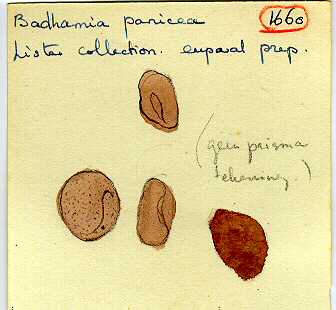 Badhamia panicea
1660
Lister collection. euparal prep.
(geen prisma
tekening.)